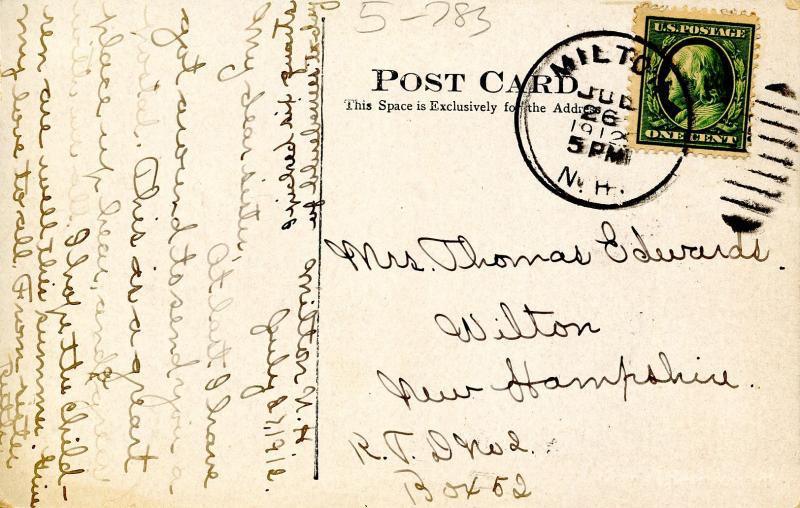 5-783
POST CARD
This Space is Exclusively for the Address
U.S. POSTAGE
ONE CENT
MILTON
JUL
26
1912
5 PM
N.H.
Mrs. Thomas Edwards.
Wilton
New Hampshire.
R.F.D No 2.
Box 52
Milton N.H.
July 21, 1912.
My dear sister,
At last I have
got around to send you a
postal. This is a great
place up hear, and
all. I hope the child-
ren are well this summer. Give
my love to all. From sister